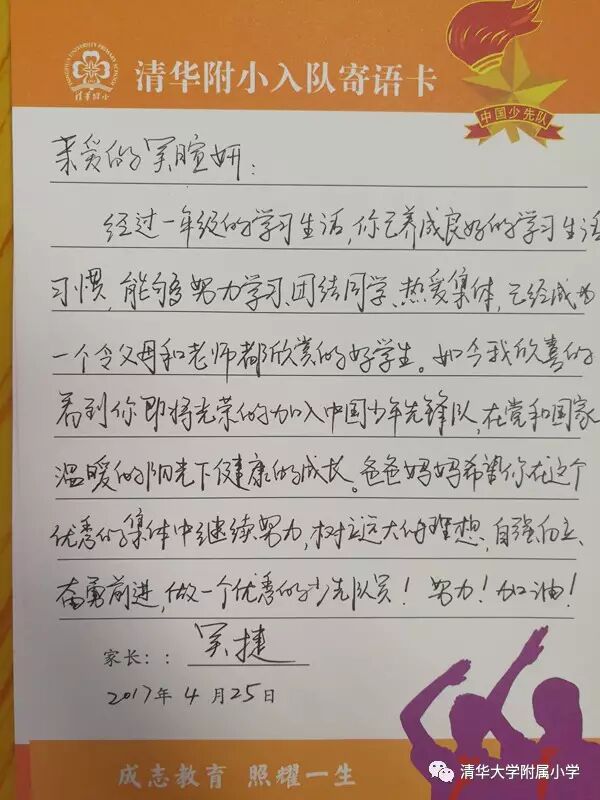 TSINGHUA UNIVERSITY PRIMARY SCHOOL
清华附小
清华附小入队寄语卡
中国少先队
亲爱的吴暄妍：
经过一年级的学习生活，你已养成良好的学习生活
习惯，能够努力学习、团结同学、热爱集体，已经成为
一个令父母和老师都欣赏的好学生。如今我欣喜的
看到你即将光荣的加入中国少年先锋队，在党和国家
温暖的阳光下健康的成长。爸爸妈妈希望你在这个
优秀的集体中继续努力，树立远大的理想，自强自立、
奋勇前进，做一个优秀的少先队员！努力！加油！
家长：：吴捷
2017年4月25日
成志教育 照耀一生
清华大学附属小学